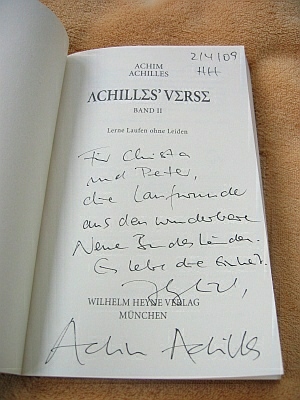 2/4/09
HH
ACHIM
ACHILLES
ACHILLES' VERSE
BAND II
Lerne Laufen ohne Leiden
Für Christa
und Peter,
die Lauffreunde
aus den wunderbaren
Neuen Bundesländern.
Es lebe die Einheit.
WILHELM HEYNE VERLAG
MÜNCHEN
Achim Achilles